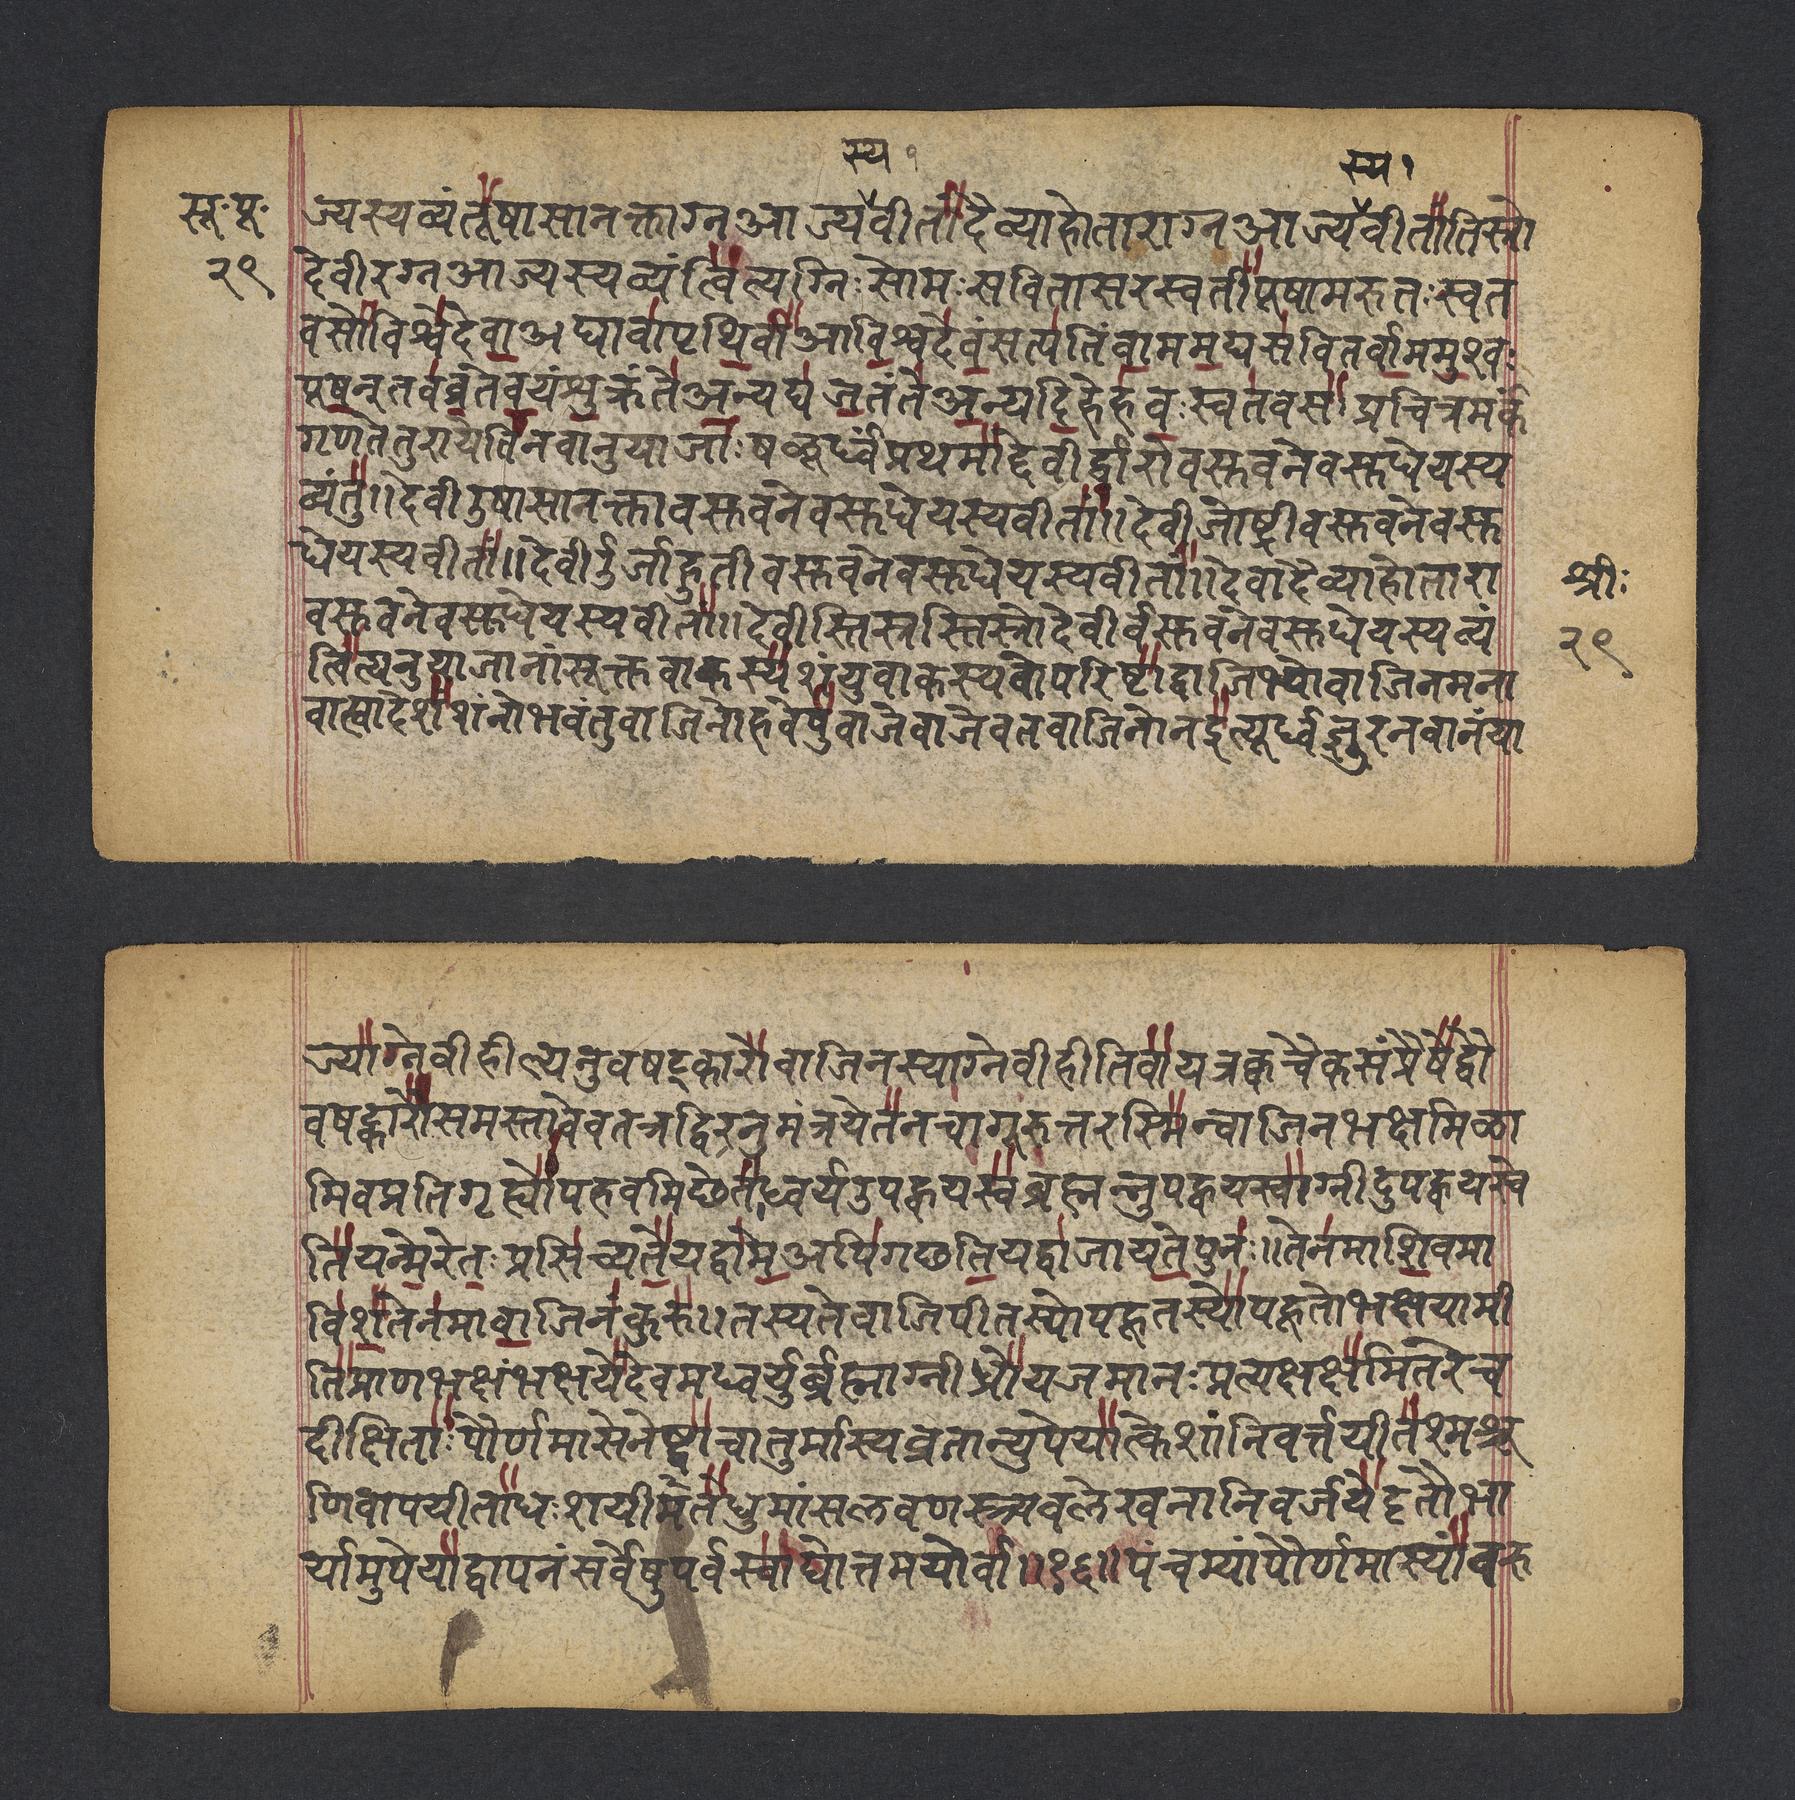 स्य १ स्य १
सू॰ पू॰ ज्यस्यव्यंतूषासानक्ताग्नआज्यवीतांदैव्याहोताराग्नआज्यवीतांतिस्रो
२९ देवीरग्नआज्यस्यव्यंत्वित्यग्निःसोमःसवितासरस्वतीपूषामरुतःस्वत
वसोविश्वेदेवाअद्यावापृथिवीआविश्वदेवंसत्पतिंवाममद्यसवितर्वाममुश्वः
पूषन्तवव्रतेवयंशुक्रंतेअन्यद्यजतंतेअन्यदिहेहवःस्वतवसः प्रचित्रमर्कं
गृणतेतुरायेतिनवानुयाजाःषळूर्ध्वंप्रथमाद्देवीर्द्वारोवसुवनेवसुधेयस्य
व्यंतु॥देवीउषासानक्तावसुवनेवसुधेयस्यवीतां॥देवीजोष्ट्रीवसुवनेवसु
धेयस्यवीतां॥देवीऊर्जाहुतीवसुवनेवसुधेयस्यवीतां॥देवादैव्याहोतारा श्रीः
वसुवनेवसुधेयस्यवीतां॥देवीस्तिस्रस्तिस्रोदेवीर्वसुवनेवसुधेयस्यव्यं २९
त्वित्यनुयाजानांसूक्तवाकस्यशंयुवाकस्यवोपरिष्टाद्वाजिभ्योवाजिनमना
वाह्यादेशंशंनोभवंतुवाजिनोहवेषुवाजेवाजेवतवाजिनोनइत्यूर्ध्वज्ञुरनवानंया
ज्याग्नेवीहीत्यनुवषट्कारोवाजिनस्याग्नेवीहीतिवायत्रक्वचैकसंप्रैषेद्वौ
वषट्कारौसमस्तावेवतत्रद्विरनुमंत्रयेतनचागूरुत्तरस्मिन्वाजिनभक्षमिळा
मिवप्रतिगृह्योपहवमिछेताध्वर्यउपह्वयस्वब्रह्मन्नुपह्वयस्वाग्नीदुपह्वयस्वे
तियन्मेरेतःप्रसिच्यतेयद्वामेअपिगछतियद्वाजायतेपुनः॥तेनमाशिवमा
विशतेनमावाजिनंकुरु॥तस्यतेवाजिपीतस्योपहूतस्योपहूतोभक्षयामी
तिप्राणभक्षंभक्षयेदेवमध्वर्युर्ब्रह्माग्नीध्रोयजमानःप्रत्यक्षक्षमितरेच
दीक्षिताःपौर्णमासेनेष्ट्वाचातुर्मास्यव्रतान्युपेयात्केशांनिवर्त्तयीतश्मश्रू
णिवापयीताधःशयीमतधुमांसलवणस्त्र्यवलेखनानिवर्जयेदृतौभा
र्यामुपेयाद्वापनंसर्वेषुपर्वस्वाद्योत्तमयोर्वा॥१६॥पंचम्यांपौर्णमास्यांवरु